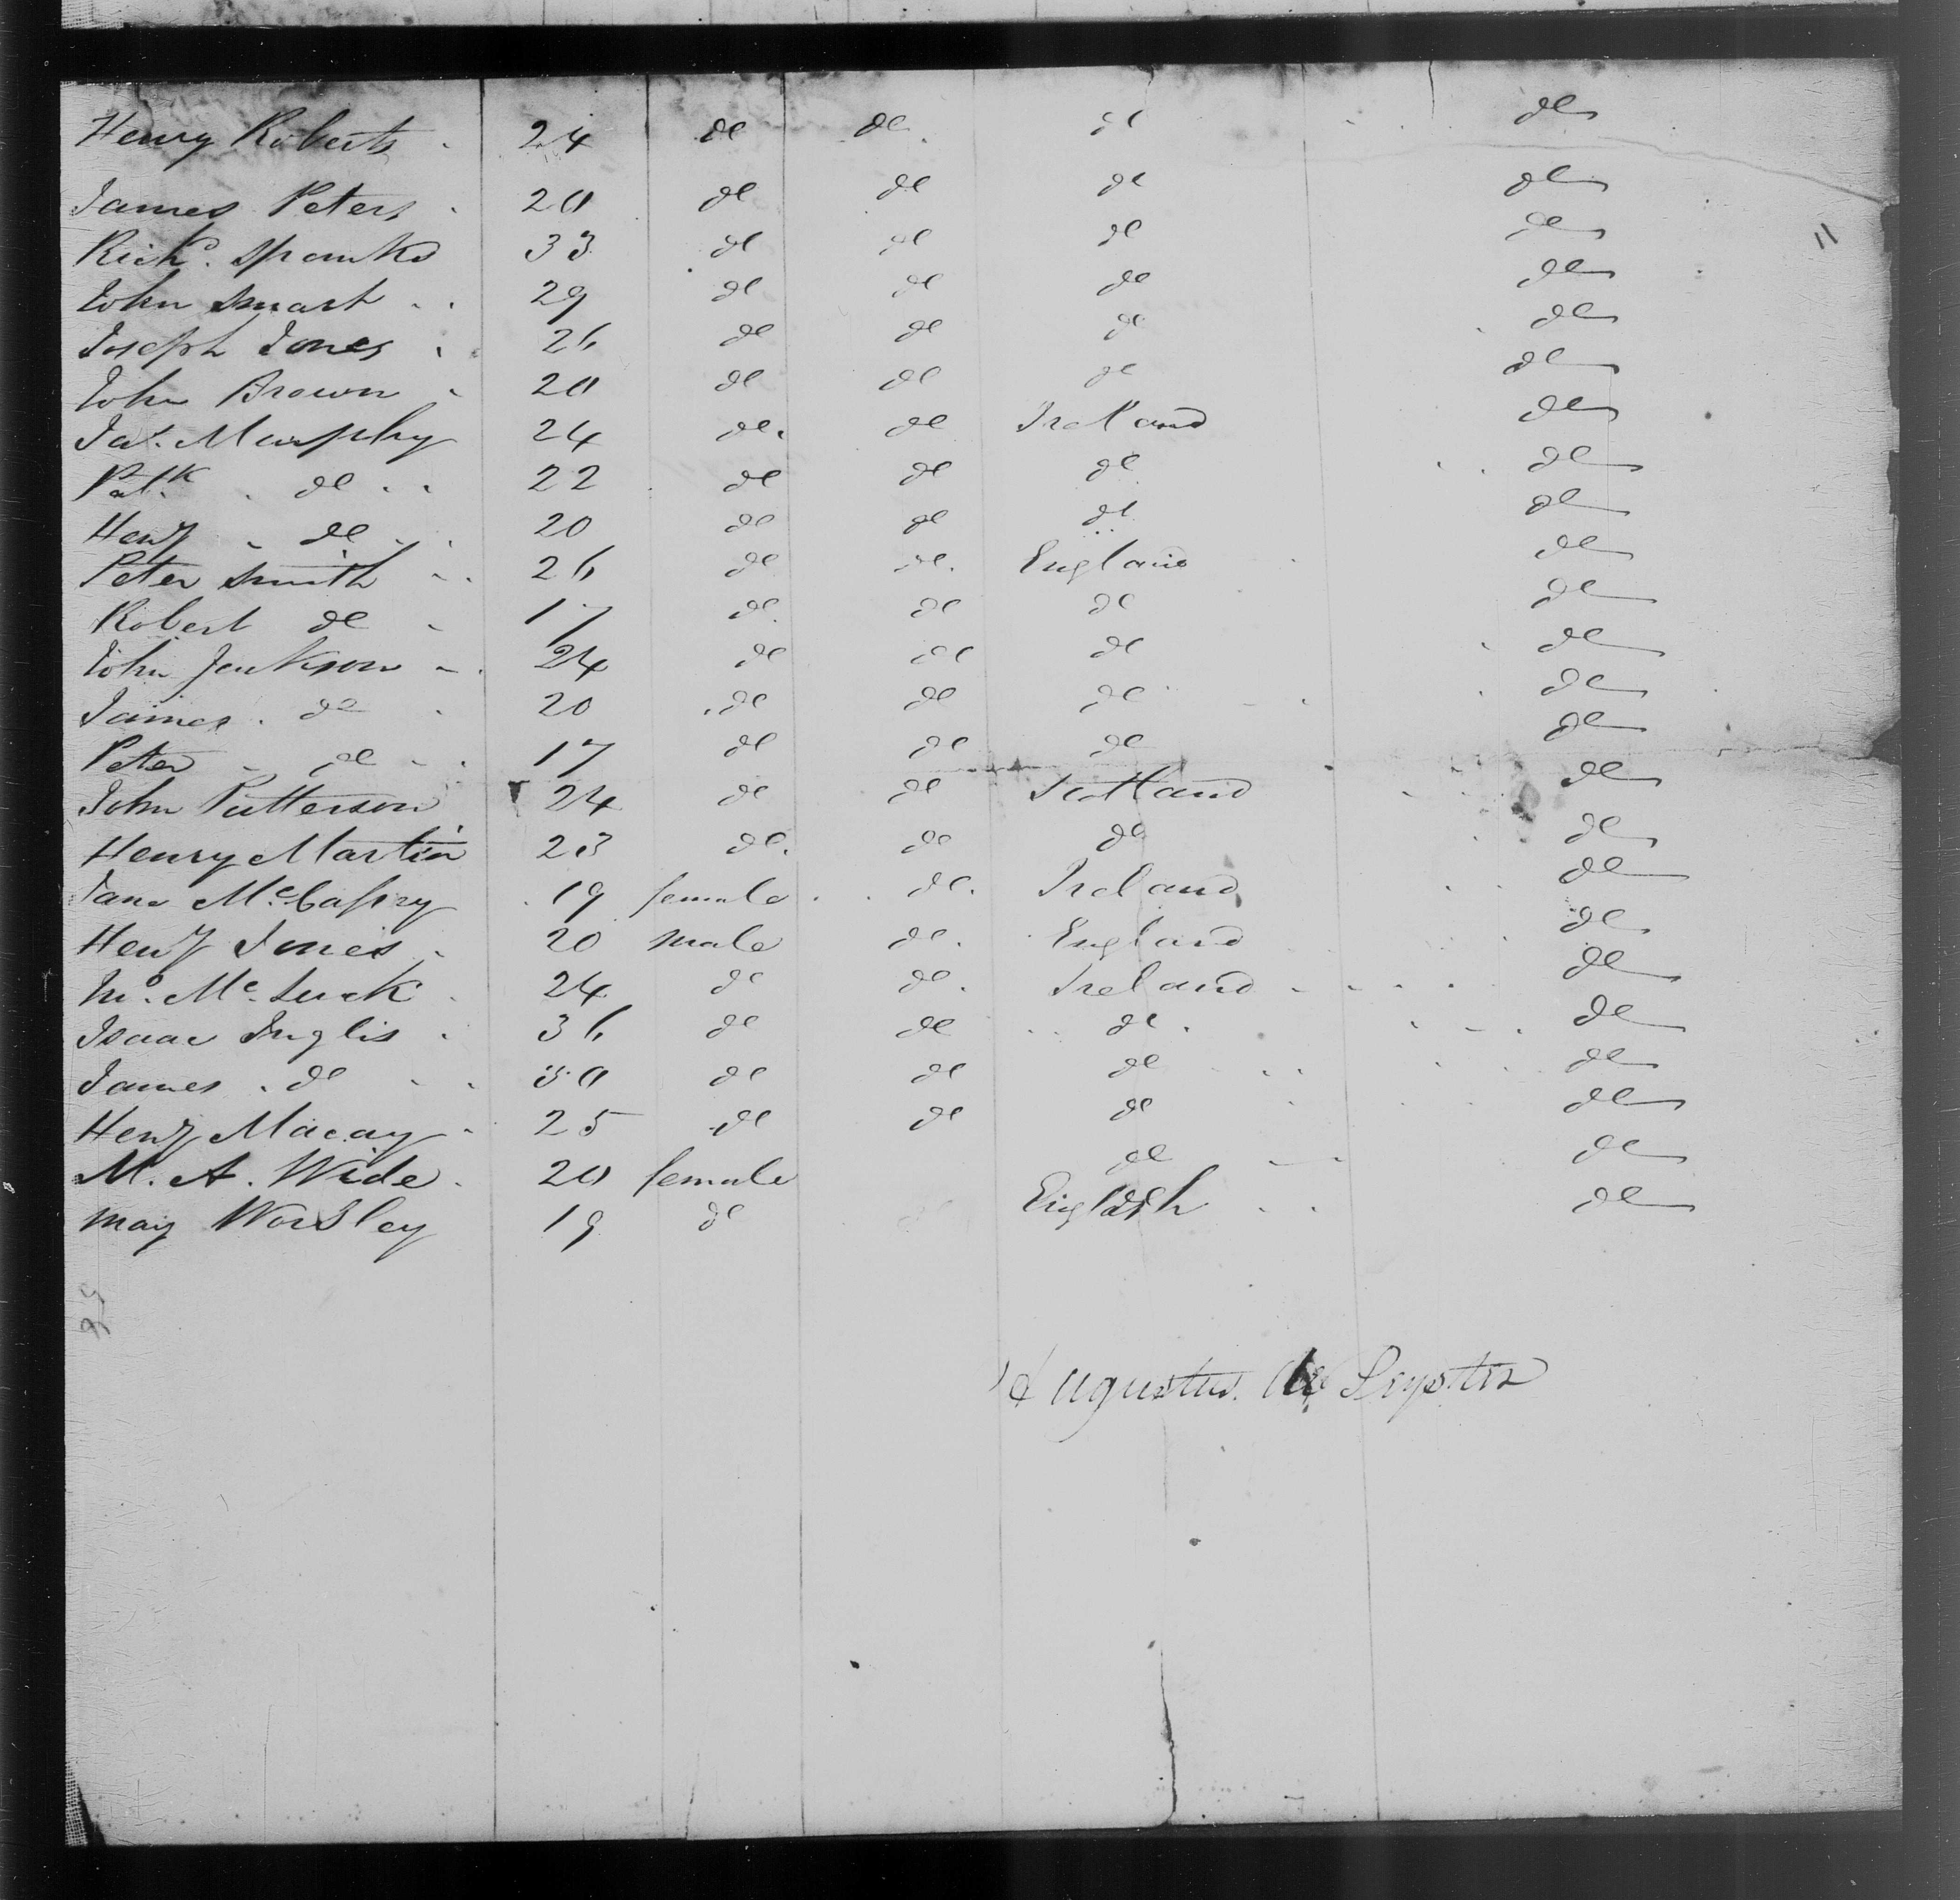 Henry Roberts 24 do do do do
James Peters 20 do do do do
Richd. Spanks 33 do do do do
John Smart 29 do do do do
Joseph Jones 26 do do do do
John Brown 20 do do do do
Jas. Murphy 24 do do Ireland do
Patk. do 22 do do do do
Heny do 20 do do do do
Peter Smith 26 do do England do
Robert do 17 do do do do
John Jenkison 24 do do do do
James do 20 do do do do
Peter do 17 do do do do
John Patterson 24 do do Scotland do
Henry Martin 23 do do do do
Jane McCaffry 19 female do Ireland do
Heny Jones 20 male do England do
Jno. Mc 24 do do Ireland do
Isaac Inglis 36 do do do do
James do 30 do do do do
Heny Macay 25 do do do do
M. A. Wide 20 female do do
May Worsley 19 do English do
Augustus
11